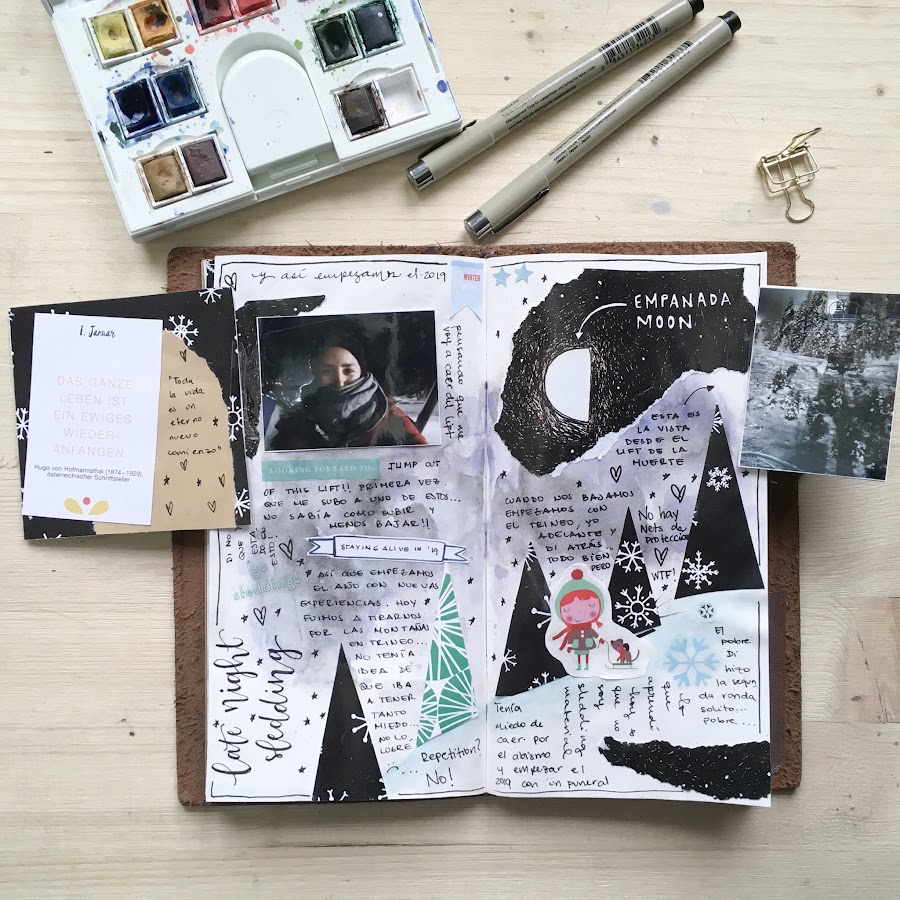 1. Januar
DAS GANZE
LEBEN IST
EIN EWIGES
WIEDER-
ANFANGEN.
Hugo von Hofmannsthal (1874–1929),
österreichischer Schriftsteller
"Toda
la vida
es un
eterno
nuevo
comienzo"
y así empezamos el 2019
WINTER
pensando que me
voy a caer del lift
LOOKING FORWARD TO:
JUMP OUT
OF THIS LIFT!! PRIMERA VEZ,
QUE ME SUBO A UNO DE ESTOS...
NO SABÍA COMO SUBIR Y
MENOS BAJAR!!
STAYING ALIVE IN '19
go
sledding!
ASÍ QUE EMPEZAMOS
EL AÑO CON NUEVAS
EXPERIENCIAS. HOY
FUIMOS A TIRARNOS
POR LAS MONTAÑAS
EN TRINEO...
NO TENÍA
IDEA DE
QUE IBA
A TENER
TANTO
MIEDO...
NO LO
LOGRÉ
late night
sledding
Repetition?
No!
EMPANADA
MOON
ESTA ES
LA VISTA
DESDE EL
LIFT DE LA
MUERTE
CUANDO NOS BAJAMOS
EMPEZAMOS CON
EL TRINEO, YO
ADELANTE Y
DI ATRÁS.
TODO BIEN.
PERO
No hay
Nets de
protección
WTF!
El
pobre
Di
hizo
la segun
da ronda
solito...
pobre...
Tenía
miedo de
caer por
el abismo
y empezar el
2019 con un funeral
aprendí
que no
soy
sledding
material